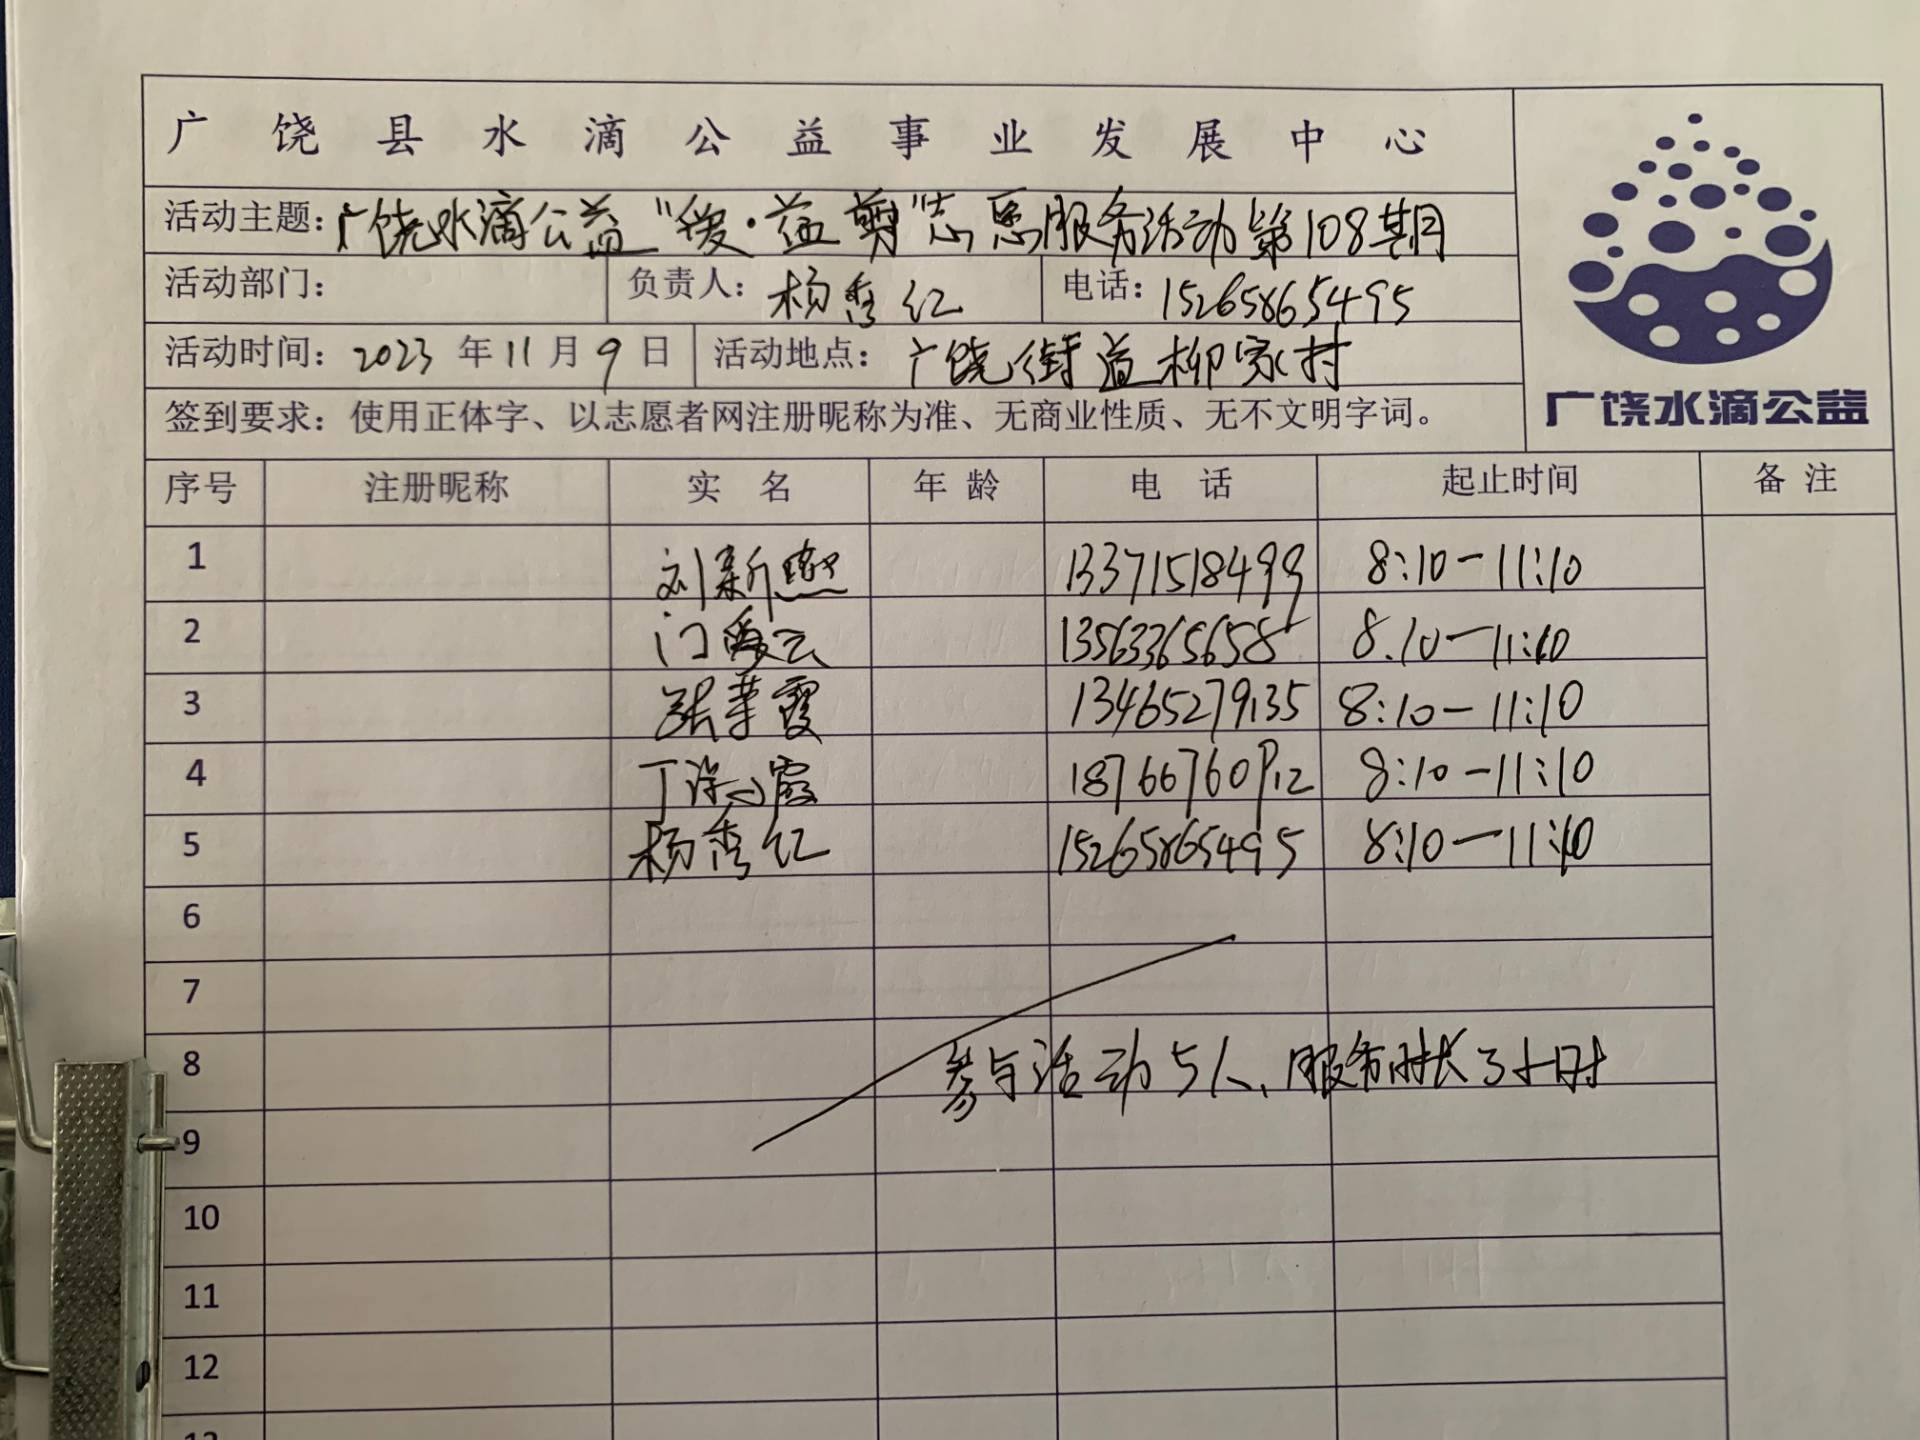 广饶县水滴公益事业发展中心
活动主题：广饶水滴公益“爱·益剪”志愿服务活动第108期
活动部门： 负责人：杨秀红 电话：15265865495
活动时间：2023年11月9日 活动地点：广饶街道柳家村
广饶水滴公益
签到要求：使用正体字、以志愿者网注册昵称为准、无商业性质、无不文明字词。
序号 注册昵称 实名 年龄 电话 起止时间 备注
1 刘新 13371518499 8:10-11:10
2 门云 13563365658 8.10-11:10
3 张霞 13465279135 8:10-11:10
4 丁霞 18766760912 8:10-11:10
5 杨秀红 15265865495 8:10-11:10
6
7
8 参与活动5人、服务时长3小时
9
10
11
12
13